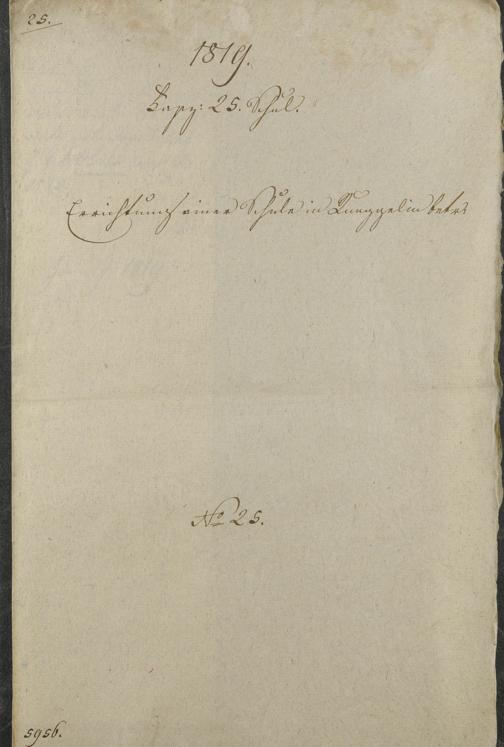 25.
1819.
Fasz: 25. Schul.
Errichtung einer Schule in Runggelin betr:
No 25.
5956.